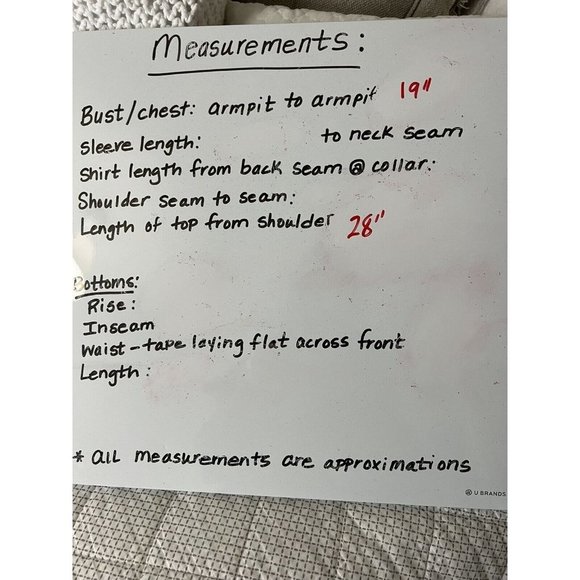 Measurements:
Bust/chest: armpit to armpit 19"
Sleeve length: to neck seam
Shirt length from back seam @ collar:
Shoulder seam to seam:
Length of top from shoulder 28"
Bottoms:
Rise:
Inseam
Waist - tape laying flat across front
Length:
* all measurements are approximations
U BRANDS